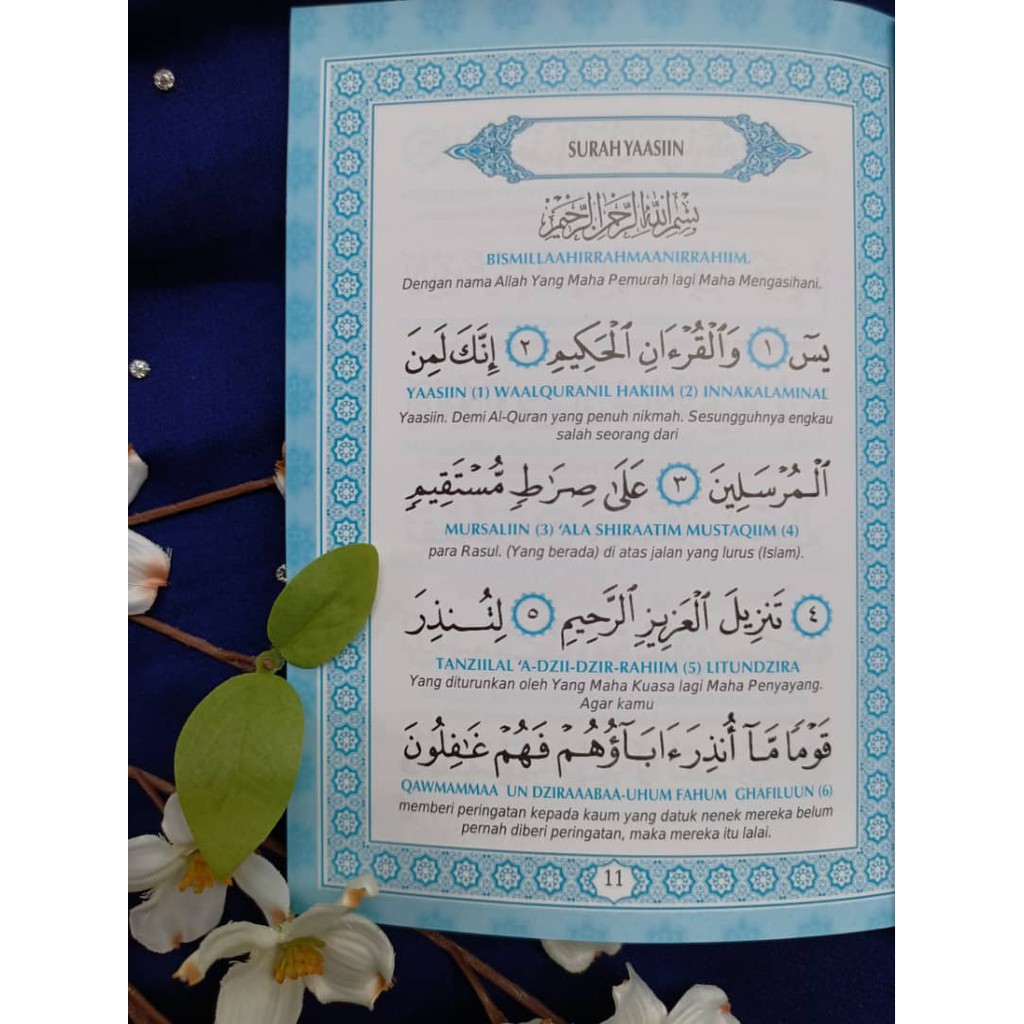 SURAH YAASIIN
بِسْمِ اللَّهِ الرَّحْمَٰنِ الرَّحِيمِ
BISMILLAAHIRRAHMAANIRRAHIIM.
Dengan nama Allah Yang Maha Pemurah lagi Maha Mengasihani.
يسٓ ١ وَٱلْقُرْءَانِ ٱلْحَكِيمِ ٢ إِنَّكَ لَمِنَ
YAASIIN (1) WAALQURANIL HAKIIM (2) INNAKALAMINAL
Yaasiin. Demi Al-Quran yang penuh nikmah. Sesungguhnya engkau
salah seorang dari
ٱلْمُرْسَلِينَ ٣ عَلَىٰ صِرَٰطٍ مُّسْتَقِيمٍ
MURSALIIN (3) ‘ALA SHIRAATIM MUSTAQIIM (4)
para Rasul. (Yang berada) di atas jalan yang lurus (Islam).
٤ تَنزِيلَ ٱلْعَزِيزِ ٱلرَّحِيمِ ٥ لِتُنذِرَ
TANZIILAL ‘A-DZII-DZIR-RAHIIM (5) LITUNDZIRA
Yang diturunkan oleh Yang Maha Kuasa lagi Maha Penyayang.
Agar kamu
قَوْمًا مَّآ أُنذِرَ ءَابَآؤُهُمْ فَهُمْ غَٰفِلُونَ
QAWMAMMAA UN DZIRAAABAA-UHUM FAHUM GHAFILUUN (6)
memberi peringatan kepada kaum yang datuk nenek mereka belum
pernah diberi peringatan, maka mereka itu lalai.
11